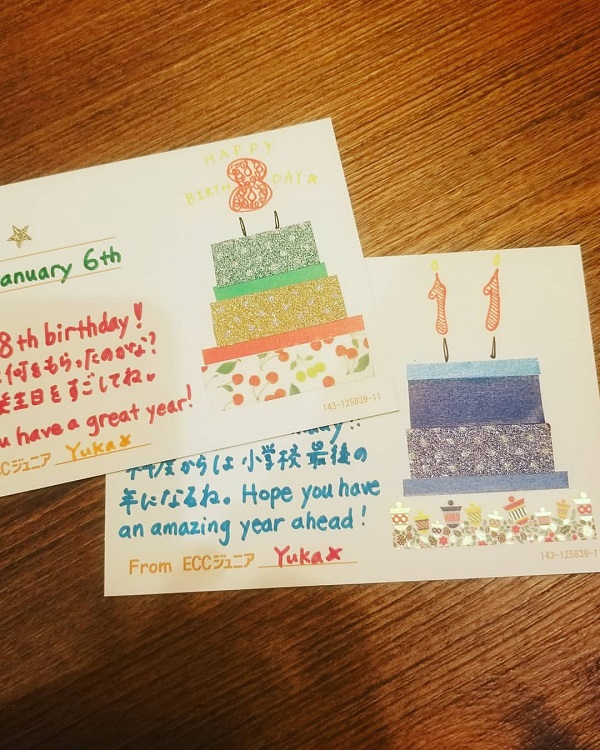 HAPPY
BIRTH 8 DAY
anuary 6th
8th birthday!
何をもらったのかな?
生日をすごしてね
u have a great year!
CCジュニア Yuka
143-125839-11
11
day!!
からは小学校最後の
年になるね。Hope you have
an amazing year ahead!
From ECCジュニア Yuka
143-125839-11